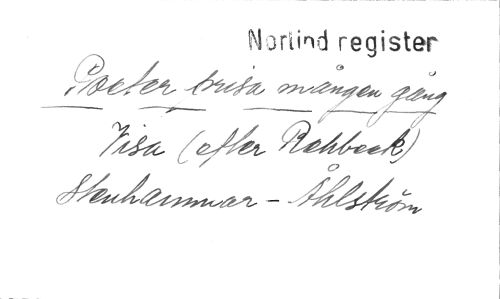 Norlind register
Poeter prisa mången gång
Visa (efter Rahbeck)
Stenhammar - Åhlström